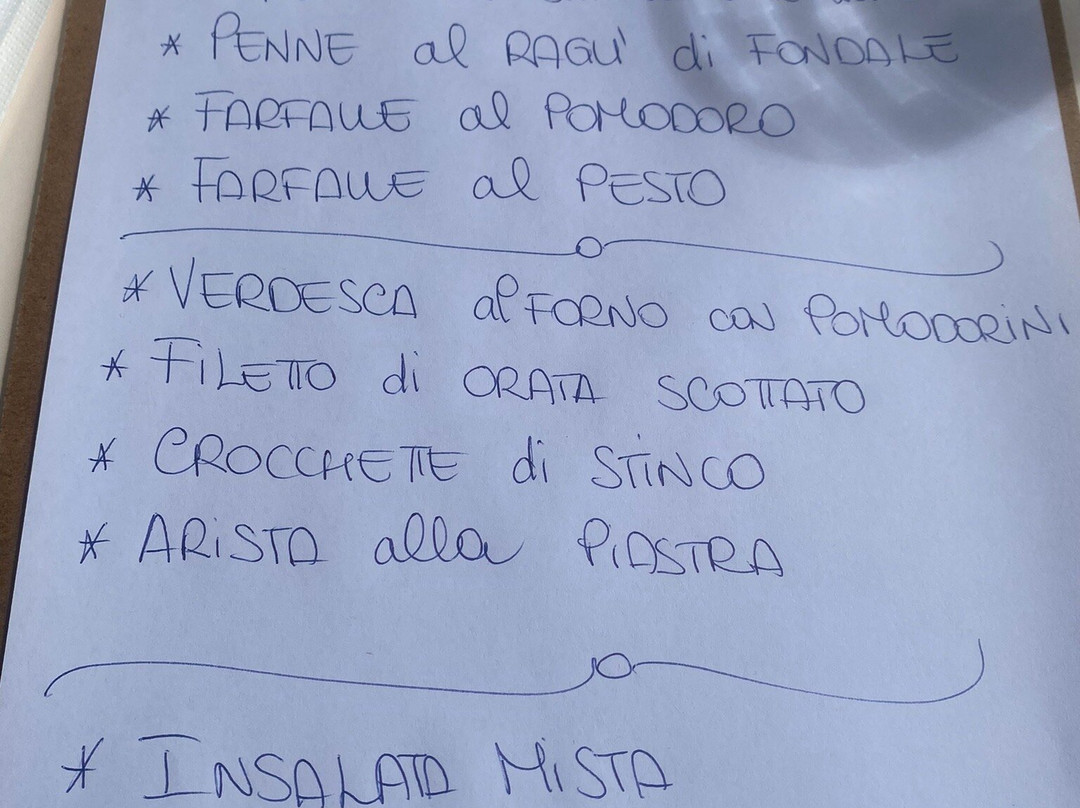 * PENNE al RAGU' di FONDALE
* FARFALLE al POMODORO
* FARFALLE al PESTO
* VERDESCA al FORNO con POMODORINI
* FILETTO di ORATA SCOTTATO
* CROCCHETTE di STINCO
* ARISTA alla PIASTRA
* INSALATA MISTA